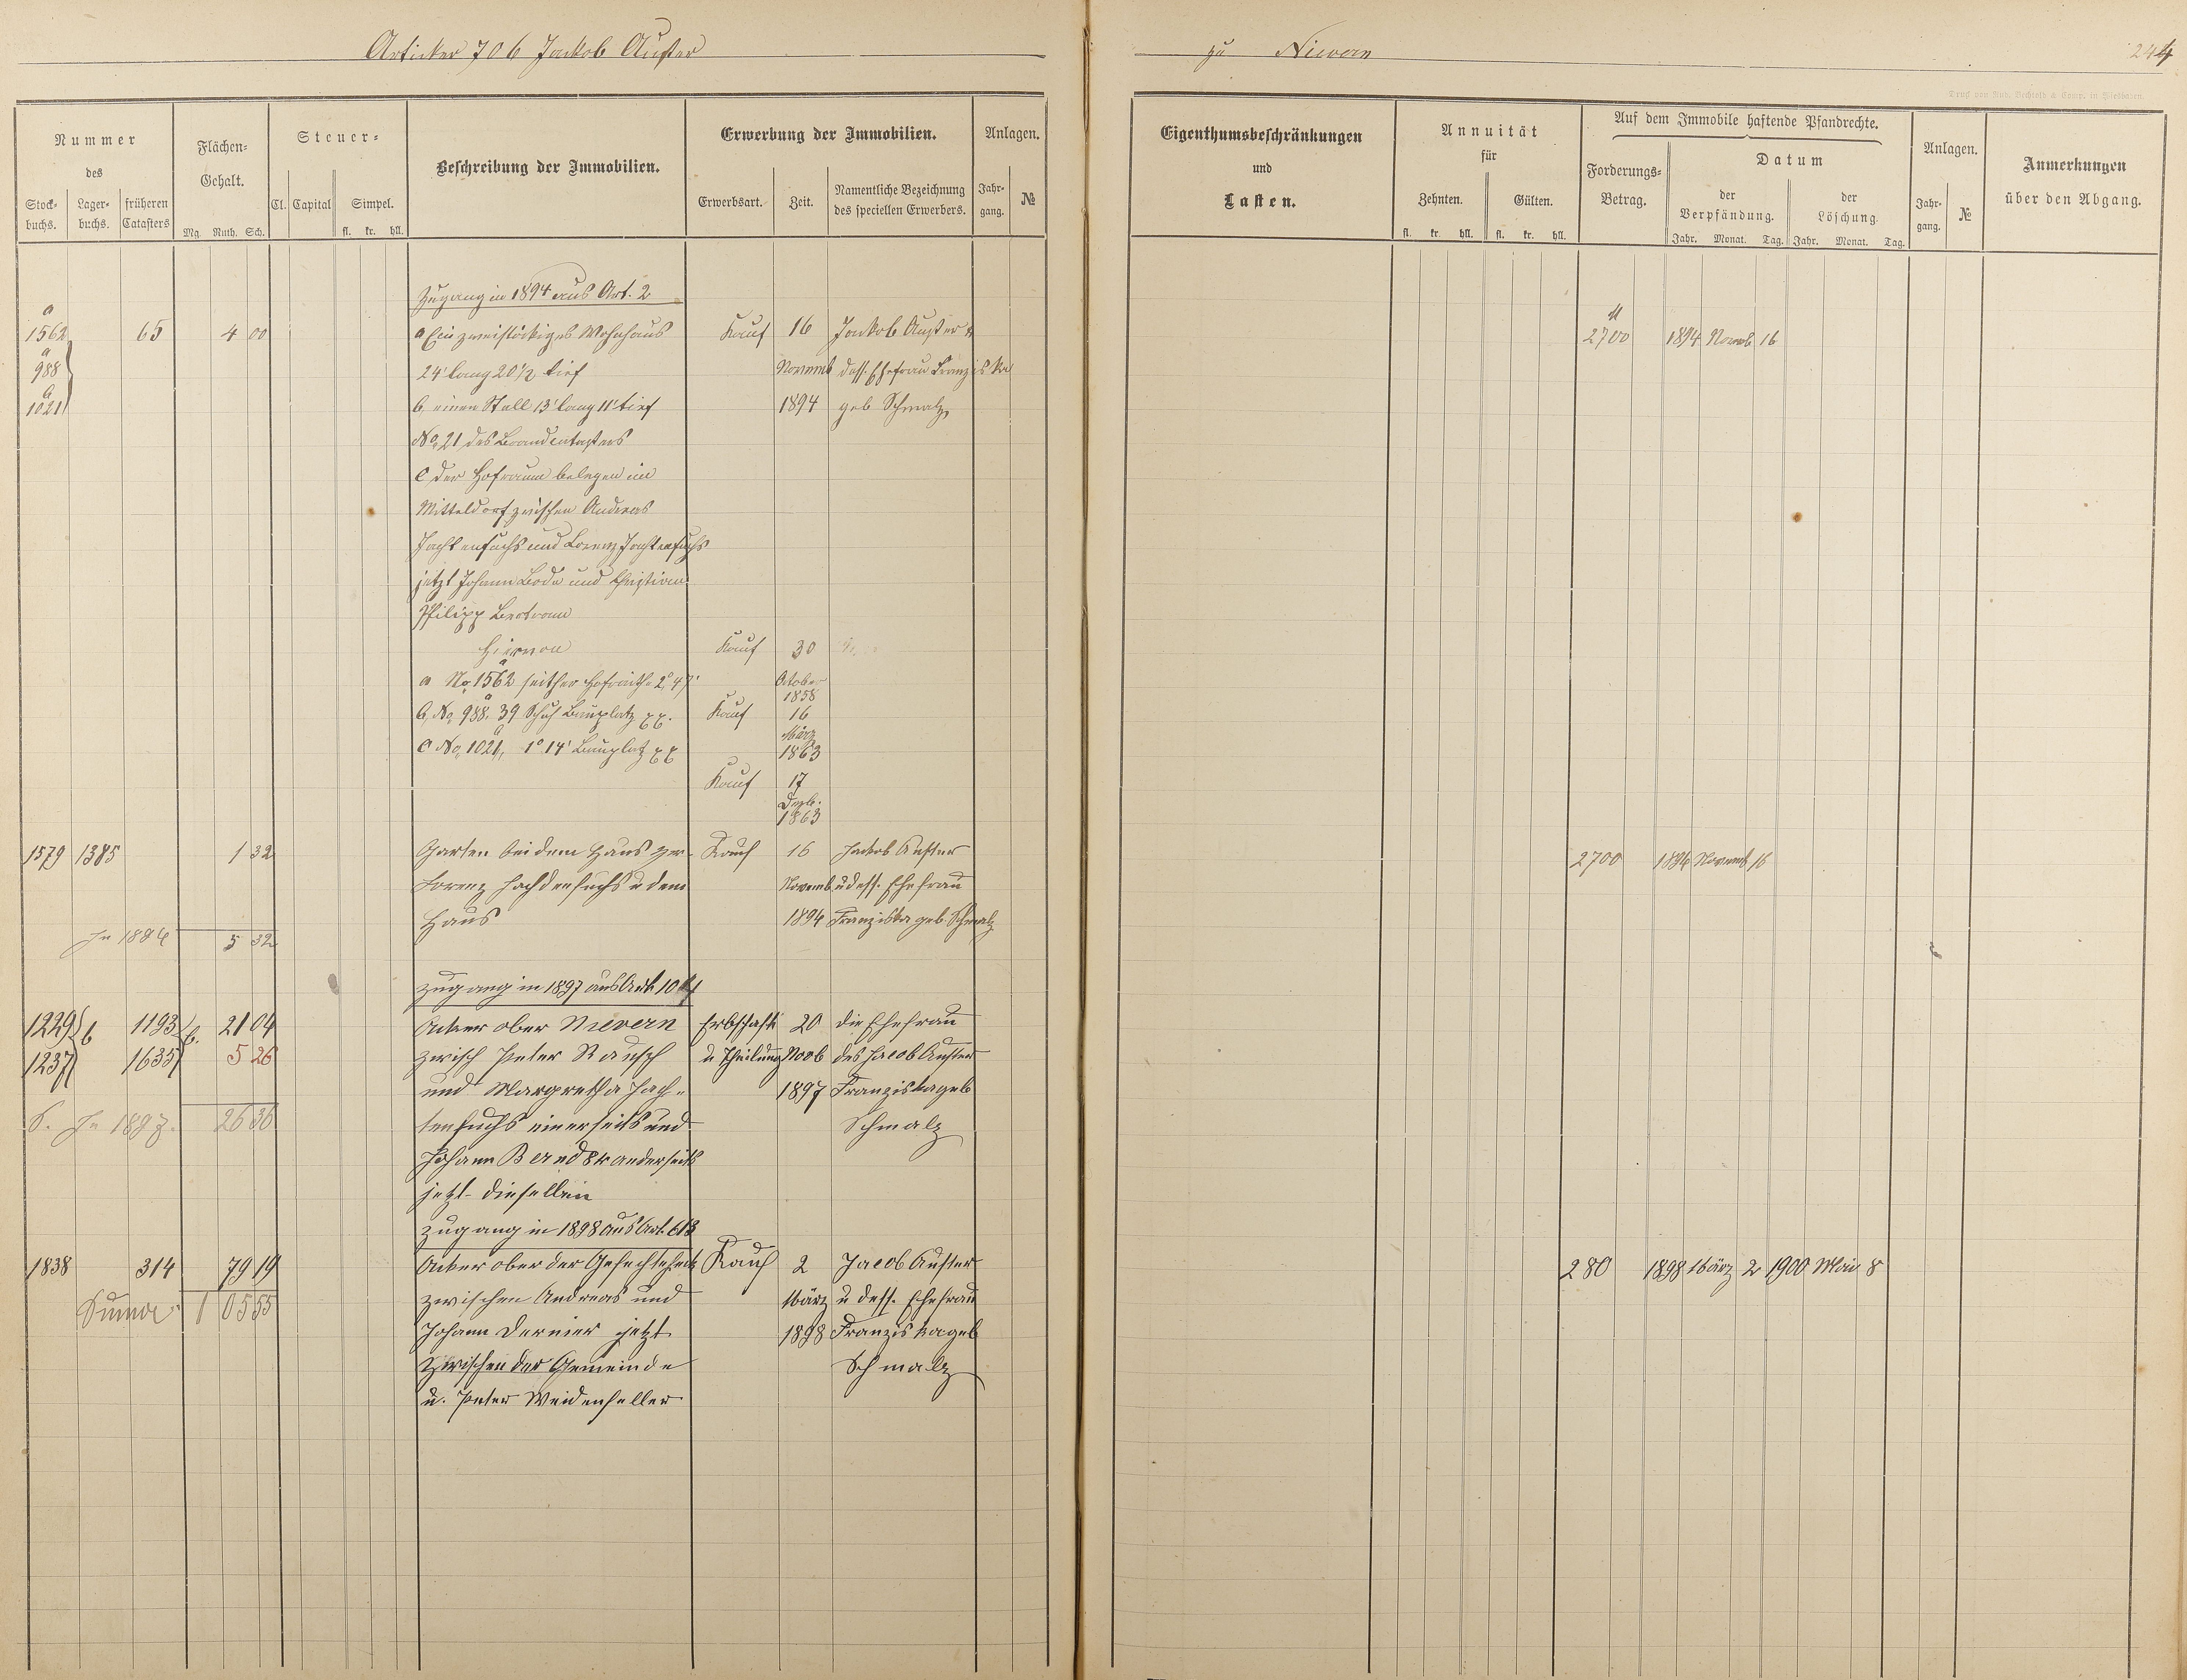 Artickel 706 Jackob Auster
zu Nievern 244
Druck von Rud. Bechtold & Comp. in Wiesbaden.
Nummer des
Stock- buchs. Lager- buchs. früheren Catasters
Flächen- Gehalt.
Mg. Ruth. Sch.
Steuer-
Cl. Capital Simpel.
fl. kr. hll.
Beschreibung der Immobilien.
Erwerbung der Immobilien.
Erwerbsart. Zeit. Namentliche Bezeichnung des speciellen Erwerbers.
Anlagen.
Jahr- gang. №
Eigenthumsbeschränkungen und Lasten.
Annuität für
Zehnten. Gülten.
fl. kr. hll. fl. kr. hll.
Auf dem Immobile haftende Pfandrechte.
Forderungs- Betrag.
Datum
der Verpfändung. der Löschung.
Jahr. Monat. Tag. Jahr. Monat. Tag.
Anlagen.
Jahr- gang. №
Anmerkungen über den Abgang.
Zugang in 1894 aus Art. 2
a M
1562 65 4 00 a Ein zweistöckiges Wohnhaus Kauf 16 Jackob Auster u 2700 1894 Novmb 16
a
988 24' lang 20 1/2 tief Novemb dess. Ehefrau Franziska
a
1021 b, einen Stall 13' lang 11' tief 1894 geb Schmalz
No. 21 des Brandcatasters
c der Hofraum belegen im
Mitteldorf zwischen Andreas
Jachtenfuchs und Lorenz Jachtenfuchs
jetzt Johann Bode und Christian
Philipp Bertram
Hiervon Kauf 30
a No. 1562 seither Hofraithe 2° 47' October 1858
b, No. 988. 39 Schuh Bauplatz Kauf 16 März
c No. 1021, 1° 14' Bauplatz 1863
Kauf 17 Dezb. 1863
1579 1385 1 32 Garten bei dem Haus zw. Kauf 16 Jackob Auster 2700 1894 Novemb 16
Lorenz Jachdenfuchs u dem Novemb u dess. Ehefrau
Haus 1894 Franziska geb. Schmalz
In 1894 5 32
Zugang in 1897 aus Art.
1229 b 1193 b. 21 04 Acker ober Nievern Erbschaft 20 die Ehefrau
1237 1635 5 26 zwisch Peter Rausch u Theilung Novb des Jacob Auster
und Margretha Jach- 1897 Franziska geb
S. In 1897. 26 36 tenfuchs einerseits und Schmalz
Johann Bernd 8r anderseits
jetzt dieselben
Zugang in 1898 aus Art. 613
1838 314 79 19 Acker ober der Kauf 2 Jacob Auster 280 1898 März 2 1900 Mai 8
Summa 1 05 55 zwischen Andreas und März u dess. Ehefrau
Johann Dernier jetzt 1898 Franziska geb
zwischen der Gemeinde Schmalz
u. Peter Weidenfeller